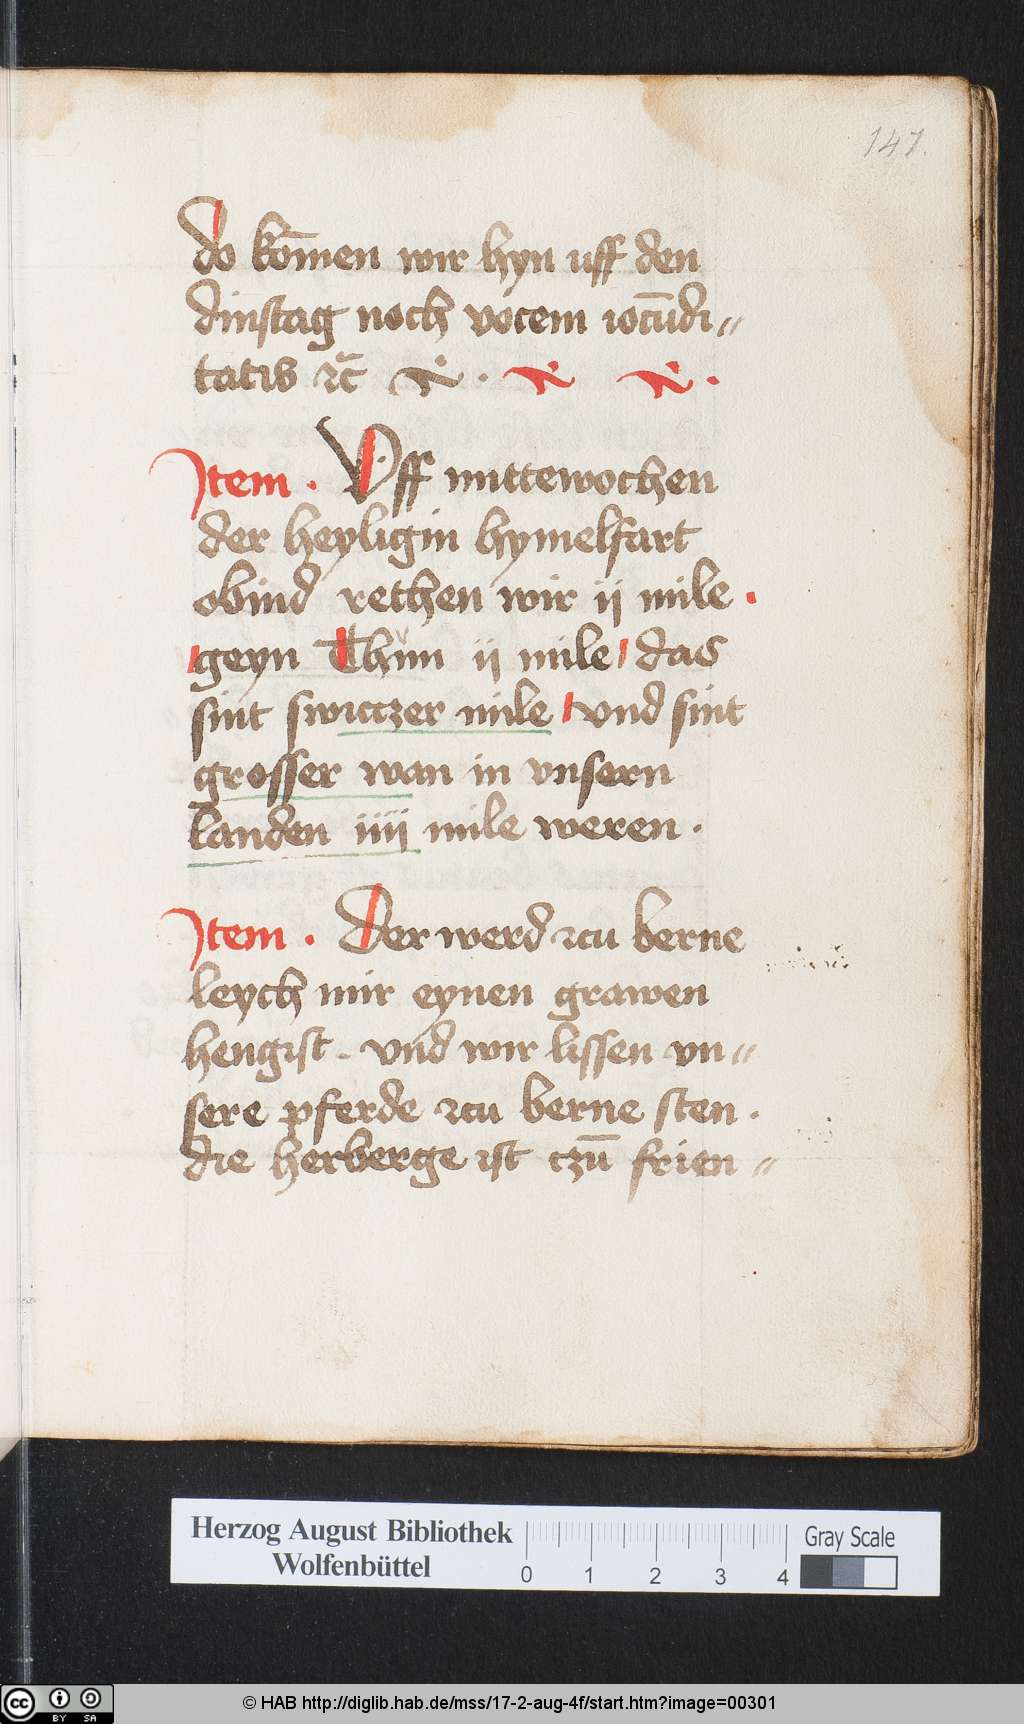 147.
do kōmen wir hyn uff den
dinstag noch vocem iocūdi〃
tatis ꝛc̄
Item . Vff mittewochen
der heyligin hymelfart
obind rethen wir ij mile .
geyn Thůn ii mile das
sint switczer mile vnd sint
grosser wan in vnsern
landen iiij mile weren .
Item . Der werd zcu berne
leych mir eynen grawen
hengist . vnd wir lissen vn〃
sere pferde zcu berne sten .
die herberge ist czū frien〃
Herzog August Bibliothek
Wolfenbüttel
0 1 2 3 4
Gray Scale
cc BY SA
© HAB http://diglib.hab.de/mss/17-2-aug-4f/start.htm?image=00301